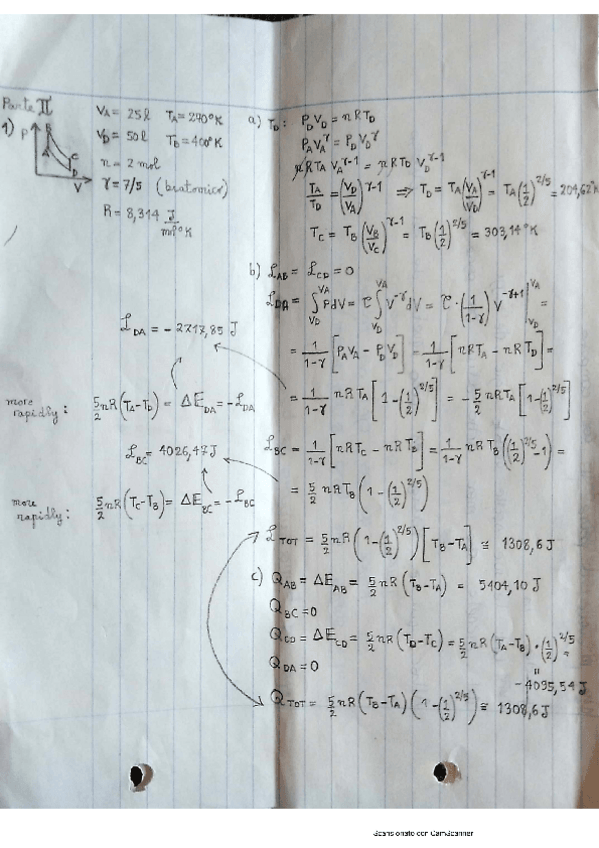 Parte II
1)
P
B
A
C
D
V
V_A = 25 l   T_A = 270°K
V_D = 50 l   T_B = 400°K
n = 2 mol
γ = 7/5 (biatomico)
R = 8,314 J/mol°K
a) T_D : P_D V_D = nRT_D
P_A V_A^γ = P_D V_D^γ
nRT_A V_A^γ-1 = nRT_D V_D^γ-1
T_A/T_D = (V_D/V_A)^γ-1 ⇒ T_D = T_A (V_A/V_D)^γ-1 = T_A (1/2)^2/5 = 204,62°K
T_C = T_B (V_B/V_C)^γ-1 = T_B (1/2)^2/5 = 303,14°K
b) L_AB = L_CD = 0
L_DA = ∫_V_D^V_A PdV = C ∫_V_D^V_A V^-γ dV = C · (1/1-γ) V^-γ+1 |_V_D^V_A =
= 1/1-γ [P_A V_A - P_D V_D] = 1/1-γ [nRT_A - nRT_D] =
L_DA = - 2717,85 J
= 1/1-γ nRT_A [1-(1/2)^2/5] = - 5/2 nRT_A [1-(1/2)^2/5]
more rapidly: 5/2 nR(T_A-T_D) = ΔE_DA = -L_DA
L_BC = 1/1-γ [nRT_C - nRT_B] = 1/1-γ nRT_B ((1/2)^2/5 -1) =
L_BC = 4026,47 J
= 5/2 nRT_B (1-(1/2)^2/5)
more rapidly: 5/2 nR(T_C-T_B) = ΔE_BC = -L_BC
L_TOT = 5/2 nR (1-(1/2)^2/5) [T_B-T_A] ≅ 1308,6 J
c) Q_AB = ΔE_AB = 5/2 nR (T_B-T_A) = 5404,10 J
Q_BC = 0
Q_CD = ΔE_CD = 5/2 nR (T_D-T_C) = 5/2 nR (T_A-T_B) · (1/2)^2/5 =
Q_DA = 0
= - 4095,54 J
Q_TOT = 5/2 nR (T_B-T_A) (1-(1/2)^2/5) ≅ 1308,6 J
Scansionato con CamScanner